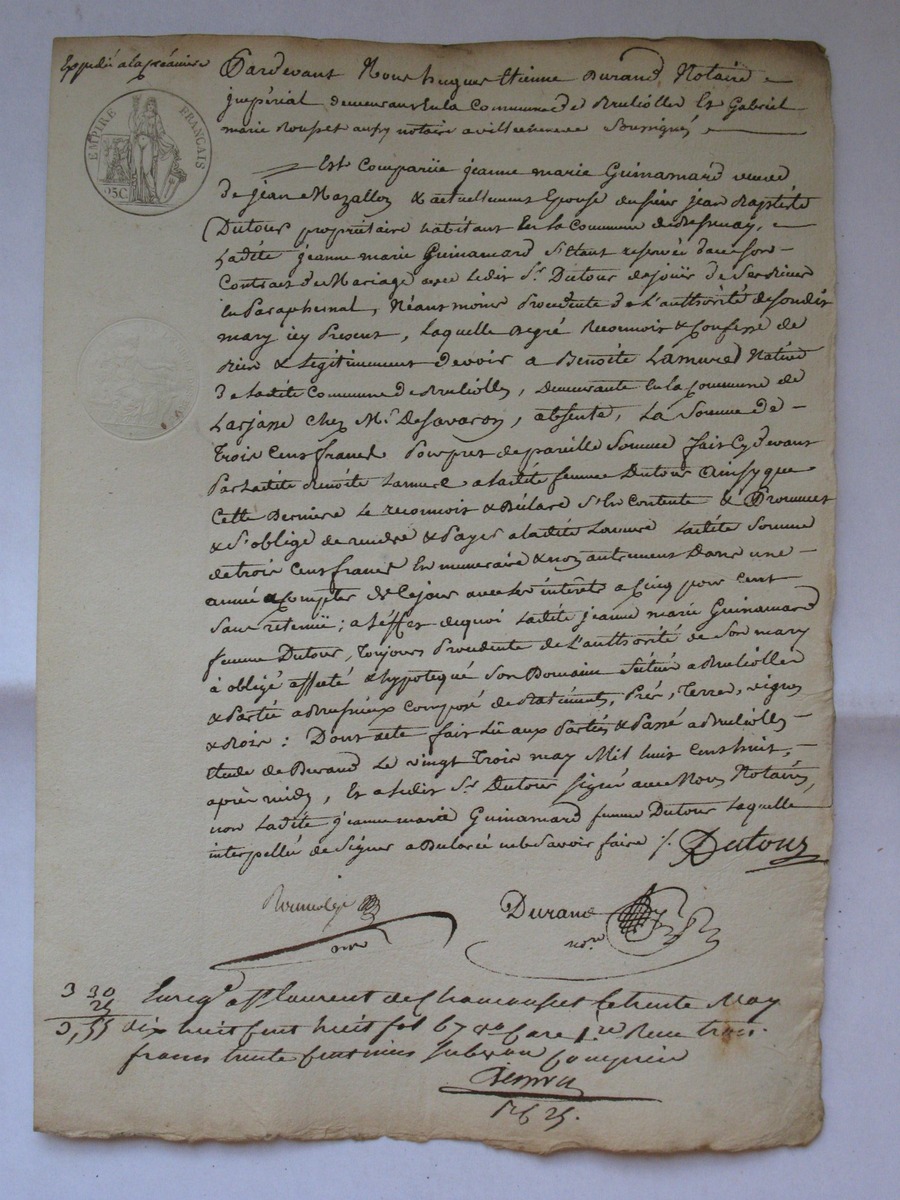 Expedié a la créancière
EMPIRE FRANÇAIS
25C
Pardevant Nous hugues Etienne Durand Notaire
jmpérial demeurant En la Commune de Brulioller Et Gabriel
marie Rousset aussy notaire a villechenève Soussignés
Est Comparüe jeanne marie Guinamard veuve
de jean Mazallon & actuellement Epouse du sieur jean Baptiste
Dutour propriétaire habitant En la Commune de Bessenay,
Ladite jeanne marie Guinamard S'Etant reservée dans son
Contract de Mariage avec ledit Sr. Dutour de jouir de Ses Biens
En Paraphernal, Néantmoins Procedente de L'authorité de sondit
mary jcy Present, Laquelle de gré Reconnoit & Confesse de
Bien & Légitimement devoir a Benoite Lamure Native
de Ladite Commune de Brullolles, demeurante En la Commune de
Larjasse chez Mr. de Savaron, absente, La Somme de
Trois Cent francs Pour pret de pareille Somme fait Cy devant
Par Ladite Benoite Lamure a Ladite femme Dutour Ainsy que
Cette Derniere Le reconnoit & Déclare S'En Contente & Prommet
& S'oblige de rendre & Payer a Ladite Lamure Ladite Somme
de trois Cent francs En numeraire & non autrement Dans une
année a Compter de Ce jour avec Les intérêts a Cinq pour Cent
Sans retenüe; a L'effet de quoi Ladite jeanne marie Guinamard
femme Dutour, Toujours Procedente de L'authorité de Son mary
à obligé affecté & hypotequé Son Domaine Situé a Brulioller
& Partie a Bussieux Composé de Batiments, Prés, Terres, vignes
& Bois: Dont acte fait Lû aux Parties & Passé a Brullolles
Etude de Durand Le vingt Trois may Mil huit Cent huit,
après midy, Et a Ledit Sr. Dutour Signé avec Nous Notaires,
non Ladite jeanne marie Guinamard femme Dutour Laquelle
interpellée de Signer a Déclaré ne le Savoir faire /. Dutour
Durand
nore
3 30
25
3,55
Enregé a St Laurent de Chamousset le trente May
dix huit Cent huit fol 67 vo Case 1re Reçu trois
francs trente Centimes Subvon Comprise